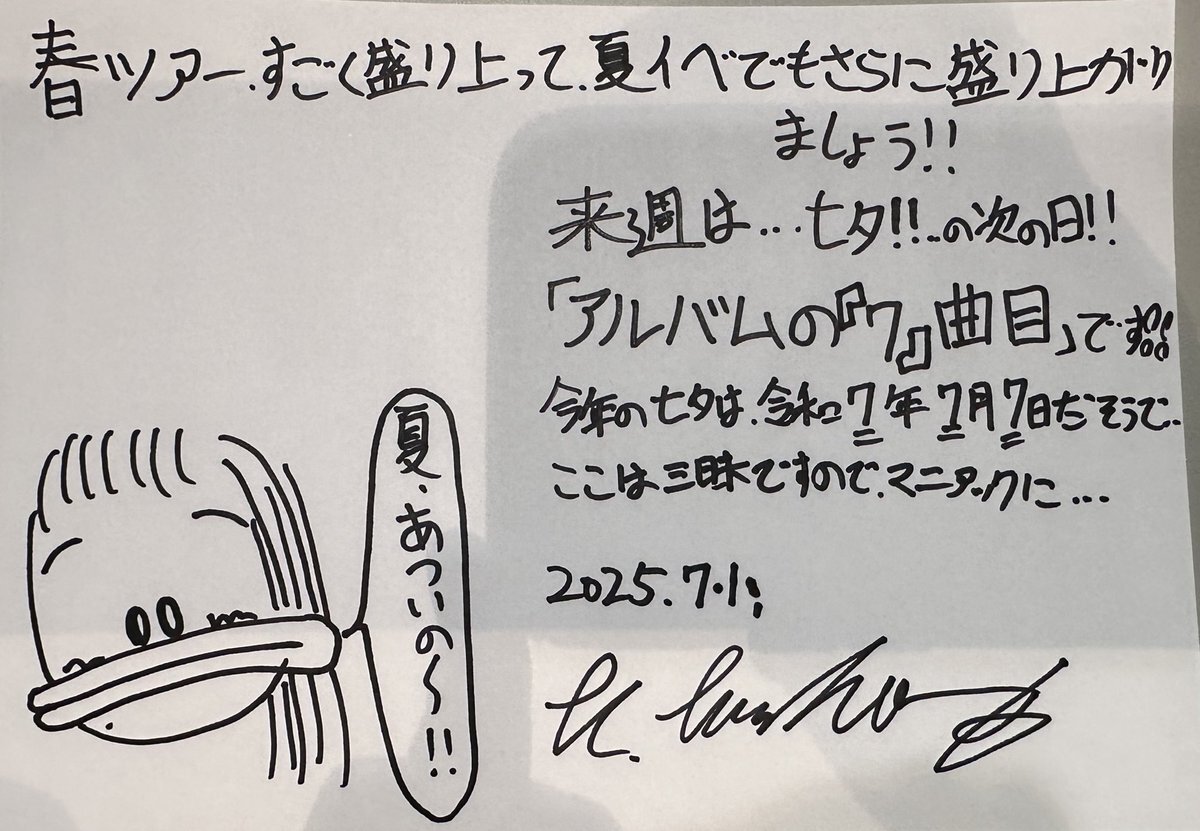 春ツアー、すごく盛り上って、夏イベでもさらに盛り上がり
ましょう!!
来週は…七夕!!…の次の日!!
「アルバムの『7』曲目」です
今年の七夕は、令和7年7月7日だそうで、
ここは三昧ですので、マニタックに…
夏、あついの〜!!
2025.7.1;